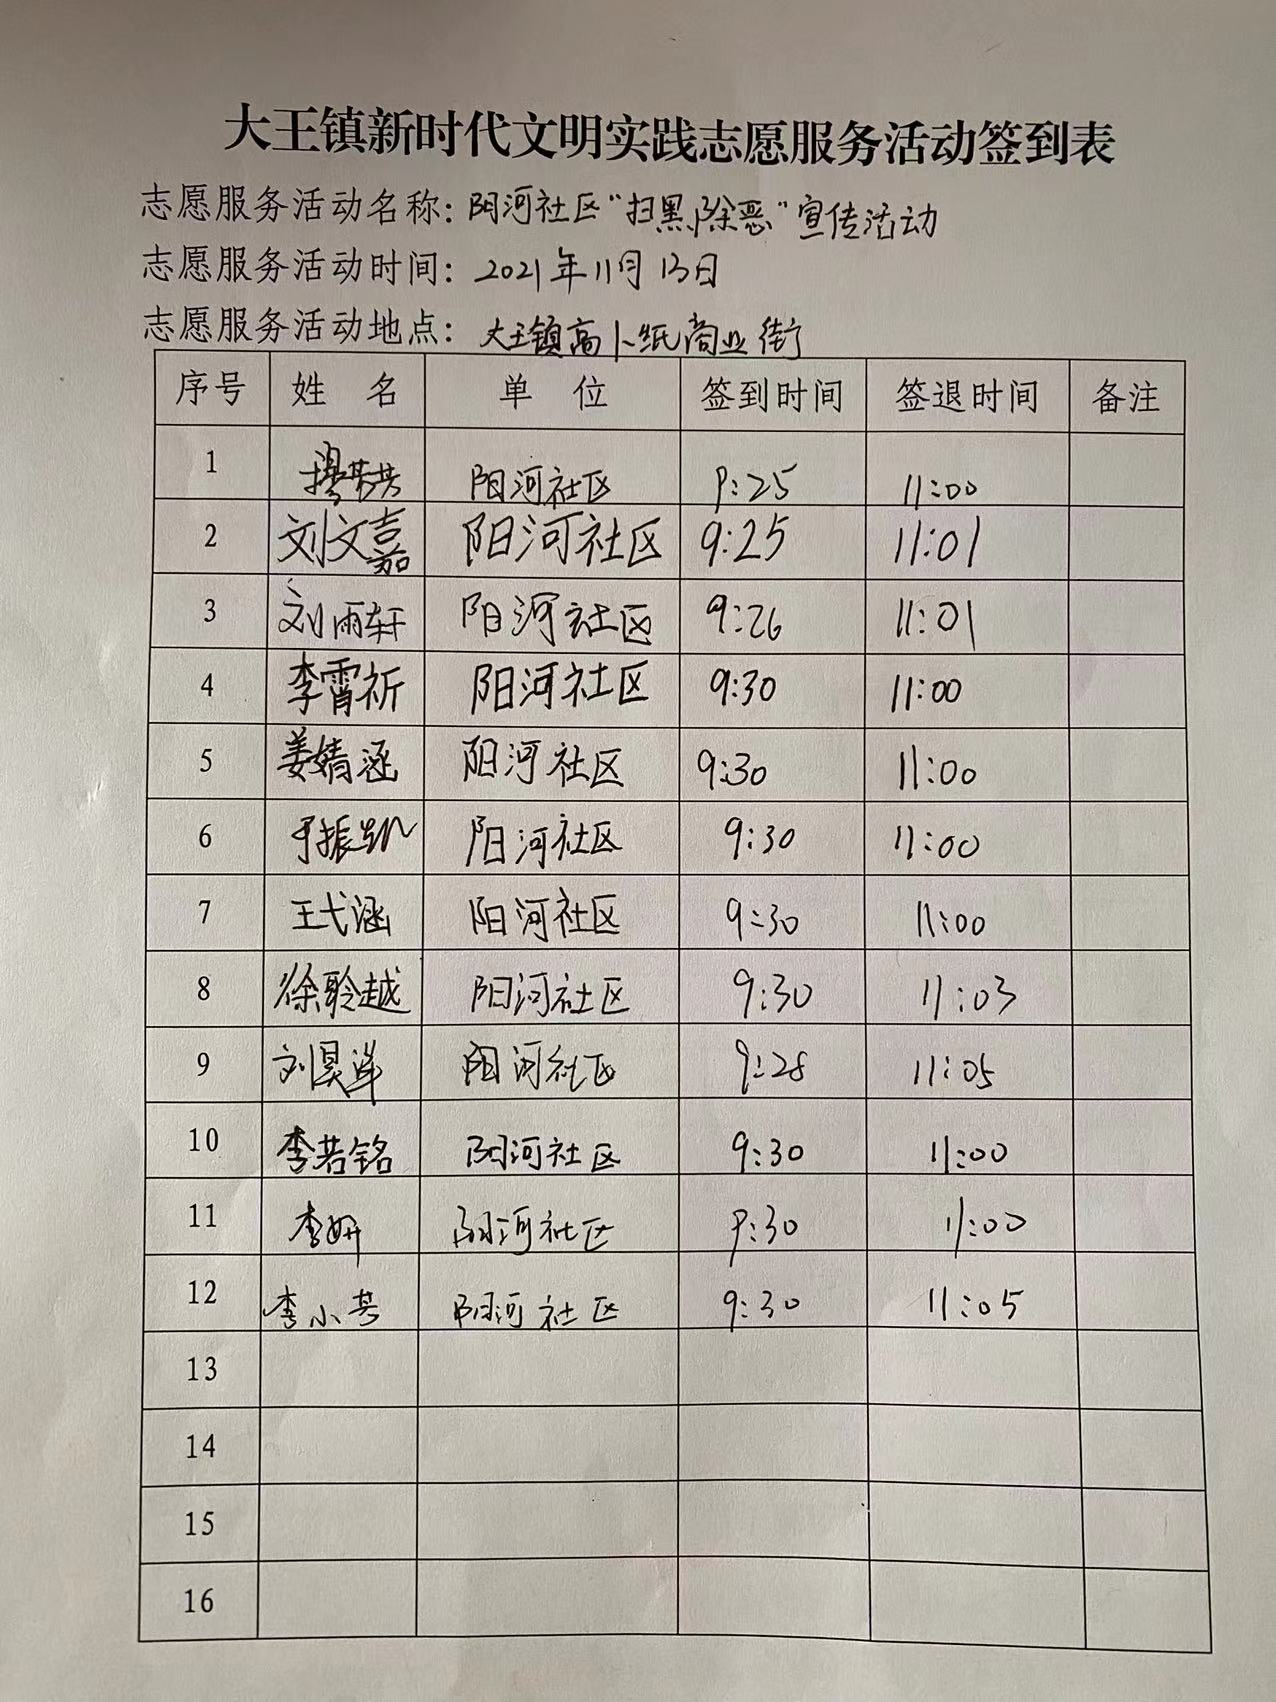 大王镇新时代文明实践志愿服务活动签到表
志愿服务活动名称：阳河社区“扫黑除恶”宣传活动
志愿服务活动时间：2021年11月13日
志愿服务活动地点：大王镇高卜纸商业街
序号 姓名 单位 签到时间 签退时间 备注
1 阳河社区 9:25 11:00
2 刘文嘉 阳河社区 9:25 11:01
3 刘雨轩 阳河社区 9:26 11:01
4 李霄祈 阳河社区 9:30 11:00
5 姜婧涵 阳河社区 9:30 11:00
6 于振凯 阳河社区 9:30 11:00
7 王弋涵 阳河社区 9:30 11:00
8 徐聆越 阳河社区 9:30 11:03
9 刘昊洋 阳河社区 9:28 11:05
10 李若铭 阳河社区 9:30 11:00
11 李妍 阳河社区 9:30 11:00
12 李小芸 阳河社区 9:30 11:05
13
14
15
16